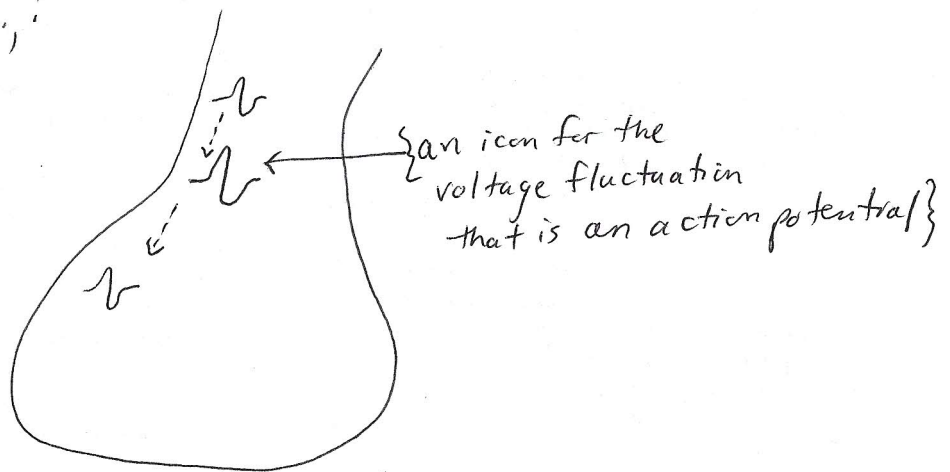 {an icon for the
voltage fluctuation
that is an action potential}